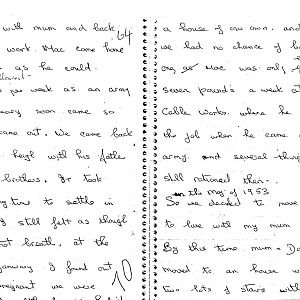 with mum and back
64
work. Mac came home
as he could.
per week as an army
soon came so
came out. We came back
heigh with his father
brothers. It took
time to settle in
still felt as though
breath, at the
January I found out
pregnant we were
10
a house of our own. and
we had no chance of
one, as Mac was only
seven pound's a week at
Cable Works. where he
the job when he came
army. and several
still retained their.
in the May of 1953
So we decided to move
to live with my mum
By this time mum + Da
moved to an house
two lots of stairs with